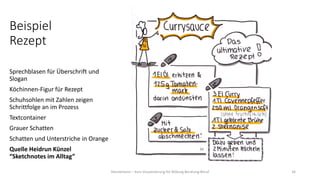 Beispiel
Rezept
Sprechblasen für Überschrift und
Slogan
Köchinnen-Figur für Rezept
Schuhsohlen mit Zahlen zeigen
Schrittfolge an im Prozess
Textcontainer
Grauer Schatten
Schatten und Unterstriche in Orange
Quelle Heidrun Künzel
"Sketchnotes im Alltag"
Currysauce
Das
ultimative
Rezept!
1 El Öl erhitzen &
125g Tomaten-
mark
darin andünsten
3 El Curry
1 Tl Cayennepfeffer
250 ml Orangensaft
1 Tl gekörnte Brühe
2 Sternanise
Mit
Zucker & Salz
abschmecken!
Dazu geben und
2 Minuten köcheln
lassen!